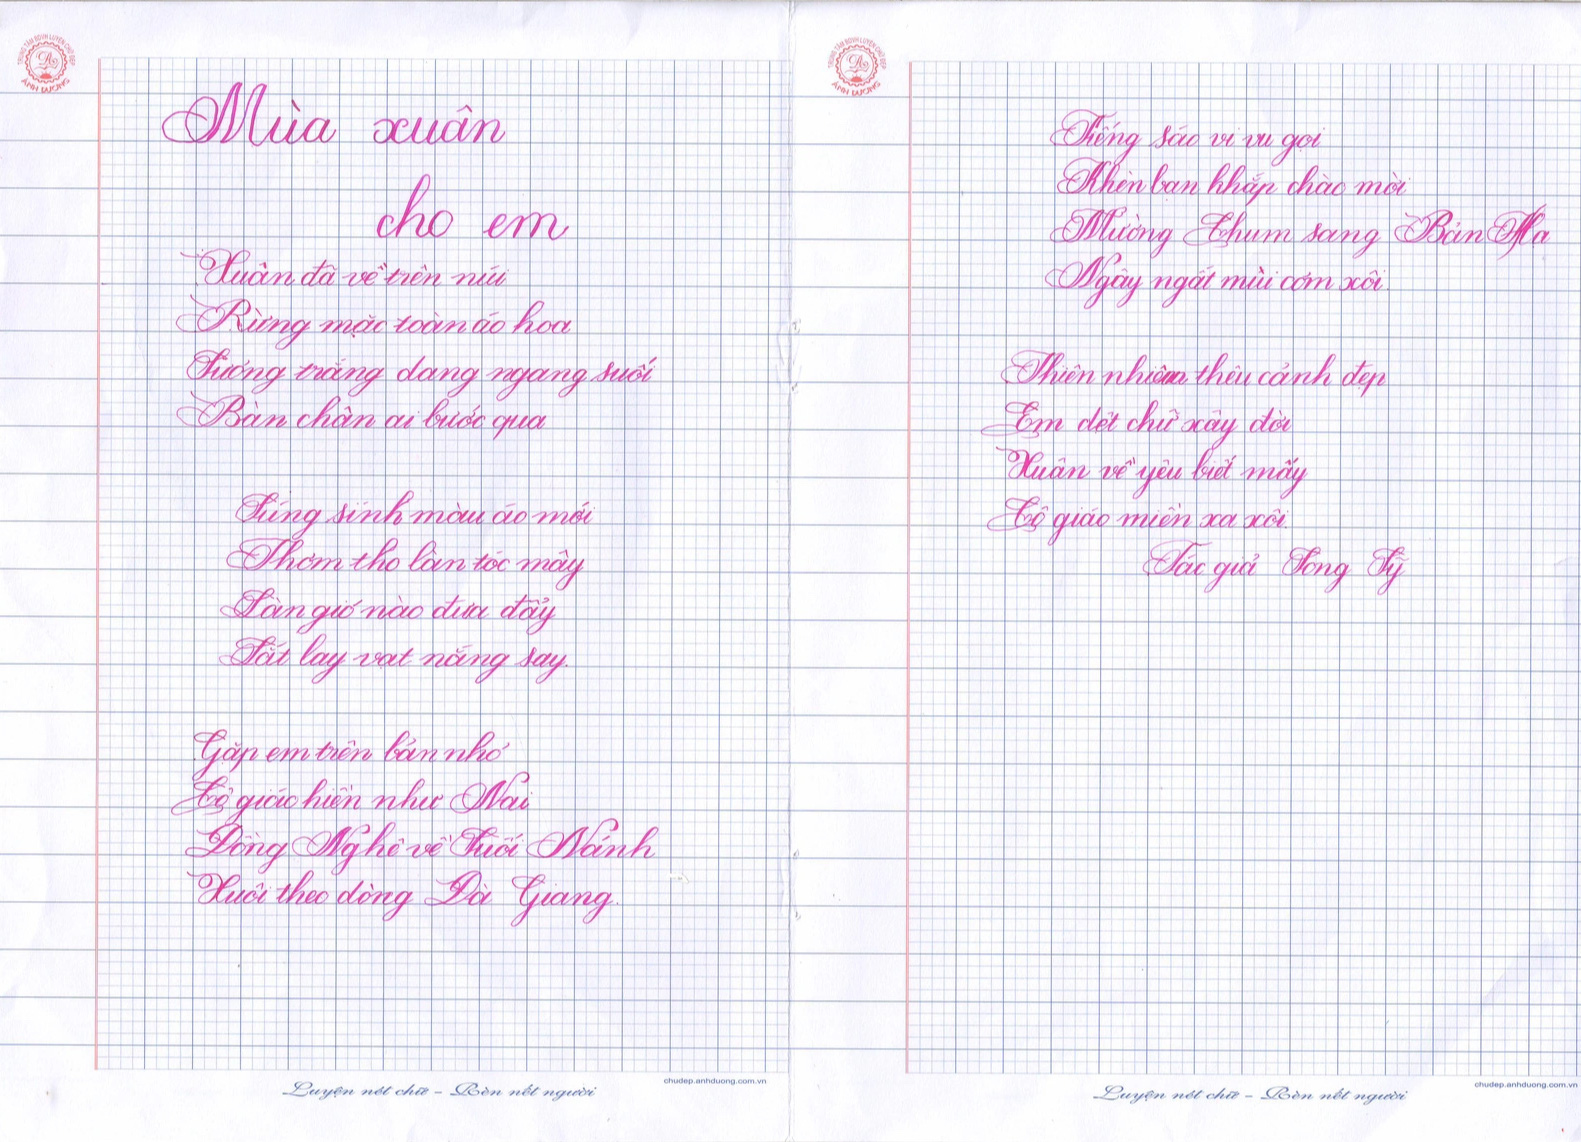 TRUNG TÂM BDVH LUYỆN CHỮ ĐẸP
ÁNH DƯƠNG
Mùa xuân
cho em
Xuân đã về trên núi
Rừng mặc toàn áo hoa
Sương trắng dang ngang suối
Bàn chân ai bước qua
Súng sính màu áo mới
Thơm tho làn tóc mây
Làn gió nào đưa đẩy
Lắt lay vạt nắng say.
Gặp em trên bản nhỏ
Cô giáo hiền như Nai
Đồng Nghê về Suối Nánh
Xuôi theo dòng Đà Giang.
Luyện nét chữ - Rèn nết người
chudep.anhduong.com.vn
TRUNG TÂM BDVH LUYỆN CHỮ ĐẸP
ÁNH DƯƠNG
Tiếng sáo vi vu gọi
Khèn bạn khắp chào mời
Mường Chum sang Bản Hạ
Ngây ngất mùi cơm xôi.
Thiên nhiên thêu cảnh đẹp
Em dệt chữ xây đời
Xuân về yêu biết mấy
Cô giáo miền xa xôi.
Tác giả Song Sỹ
Luyện nét chữ - Rèn nết người
chudep.anhduong.com.vn